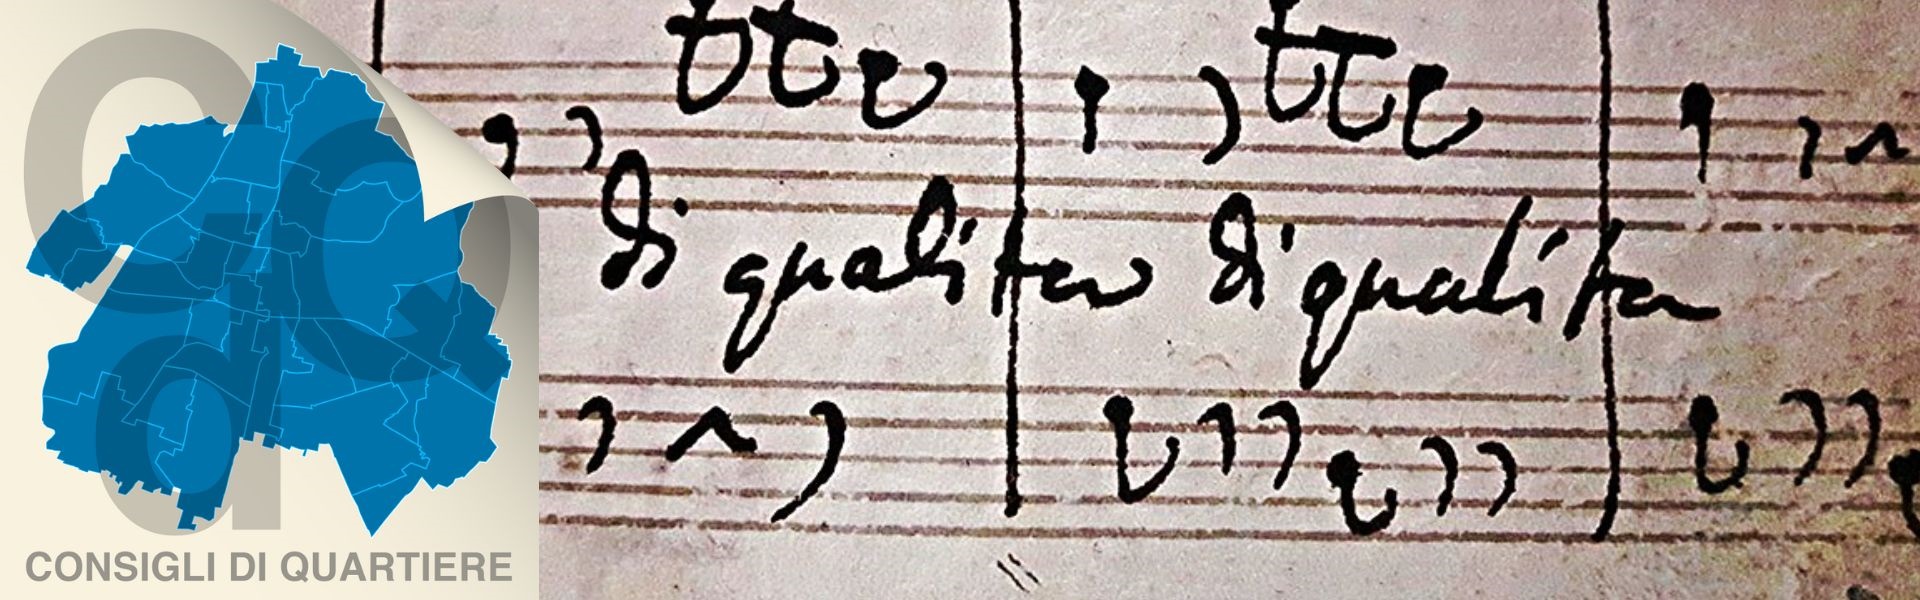 CONSIGLI DI QUARTIERE
di qualita di qualita